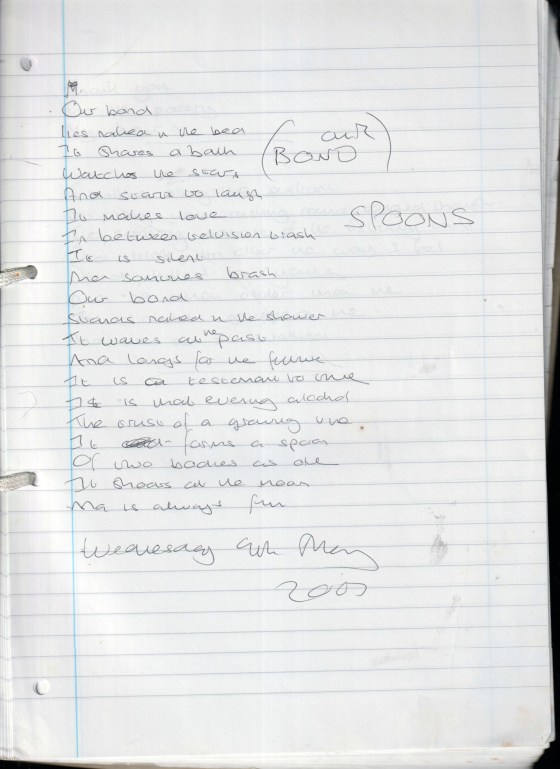 Our bond
(OUR
BOND)
lies naked in the bed
It shares a bath
Watches the stars
And starts to laugh
It makes love
SPOONS
In between television trash
It is silent
And sometimes brash
Our bond
Stands naked in the shower
It waves at the past
And longs for the future
It is a testement to time
It is that evening alcohol
The crush of a growing vine
It forms a spoon
Of two bodies as one
It shoots at the moon
And is always fun
Wednesday 9th May